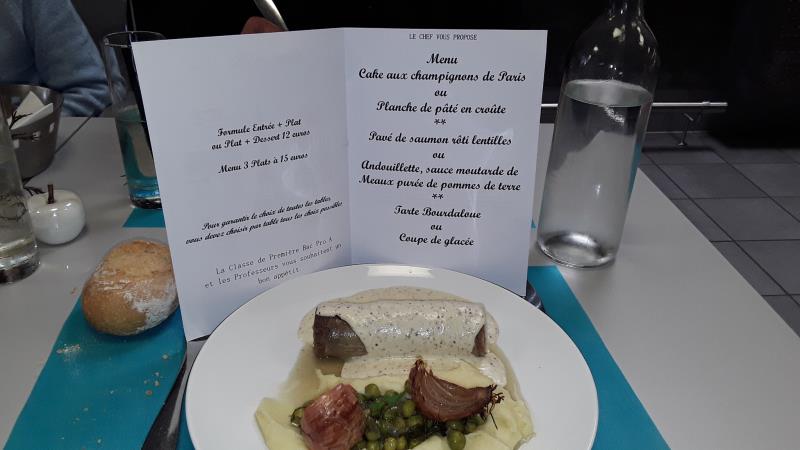 Formule Entrée + Plat
ou Plat + Dessert 12 euros
Menu 3 Plats à 15 euros
Pour garantir le choix de toutes les tables
vous devez choisir par table tous les choix possibles
La Classe de Première Bac Pro A
et les Professeurs vous souhaitent un
bon appétit
LE CHEF VOUS PROPOSE
Menu
Cake aux champignons de Paris
ou
Planche de pâté en croûte
**
Pavé de saumon rôti lentilles
ou
Andouillette, sauce moutarde de
Meaux purée de pommes de terre
**
Tarte Bourdaloue
ou
Coupe de glacée